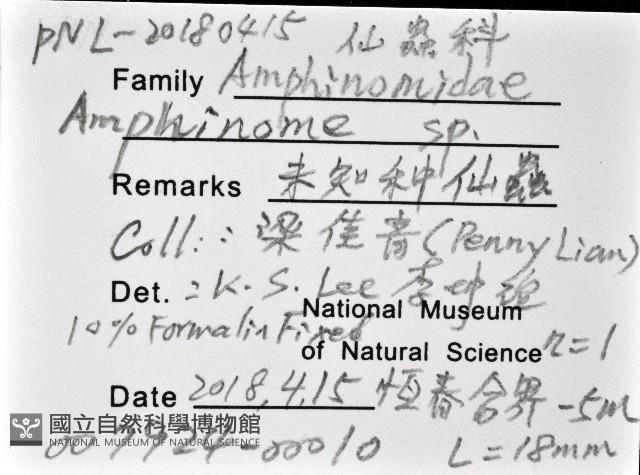 PNL-20180415 仙蟲科
Family Amphinomidae
Amphinome sp.
Remarks 未知种仙蟲
Coll: : 梁佳音 (Penny Lian)
Det. : K. S. Lee 李坤瑄
10% Formalin Fixed
National Museum
of Natural Science n=1
Date 2018.4.15 恆春合界 -5m
國立自然科學博物館
NATIONAL MUSEUM OF NATURAL SCIENCE
-00010 L=18mm